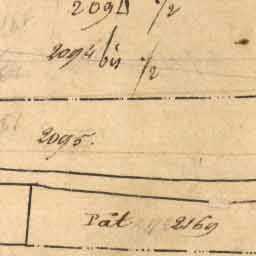 2094 1/2
2094 bis 1/2
2095.
Pât 2169